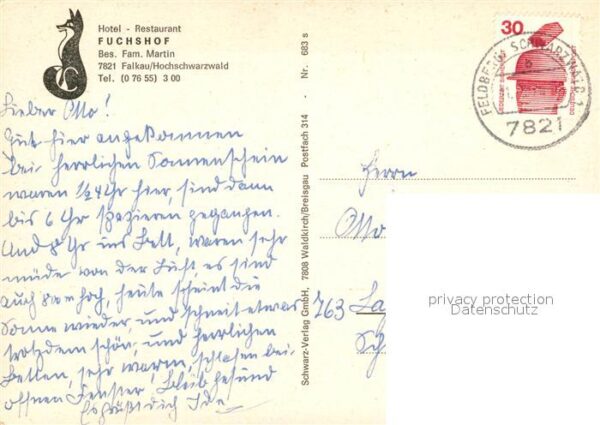 Hotel - Restaurant
FUCHSHOF
Bes. Fam. Martin
7821 Falkau/Hochschwarzwald
Tel. (0 76 55) 3 00
Lieber Otto!
Gut hier angekommen
bei herrlichen Sonnenschein
waren 1/2 4 Uhr hier, sind dann
bis 6 Uhr spazieren gegangen.
Und 8 Uhr ins Bett, waren sehr
müde von der Luft, es sind
auch 800 m hoch, heute scheint die
Sonne wieder, und schneit etwas
trotzdem schön, und herrlichen
Betten, sehr warm, schlafen bei
offnen Fenster, bleib gesund
Es grüßt dich Ida
Schwarz-Verlag GmbH, 7808 Waldkirch/Breisgau Postfach 314 · Nr. 683 s
30
DEUTSCHE BUNDESPOST
FELDBERG SCHWARZWALD 1
b
7821
Herrn
Otto
763 La
Sch
privacy protection
Datenschutz